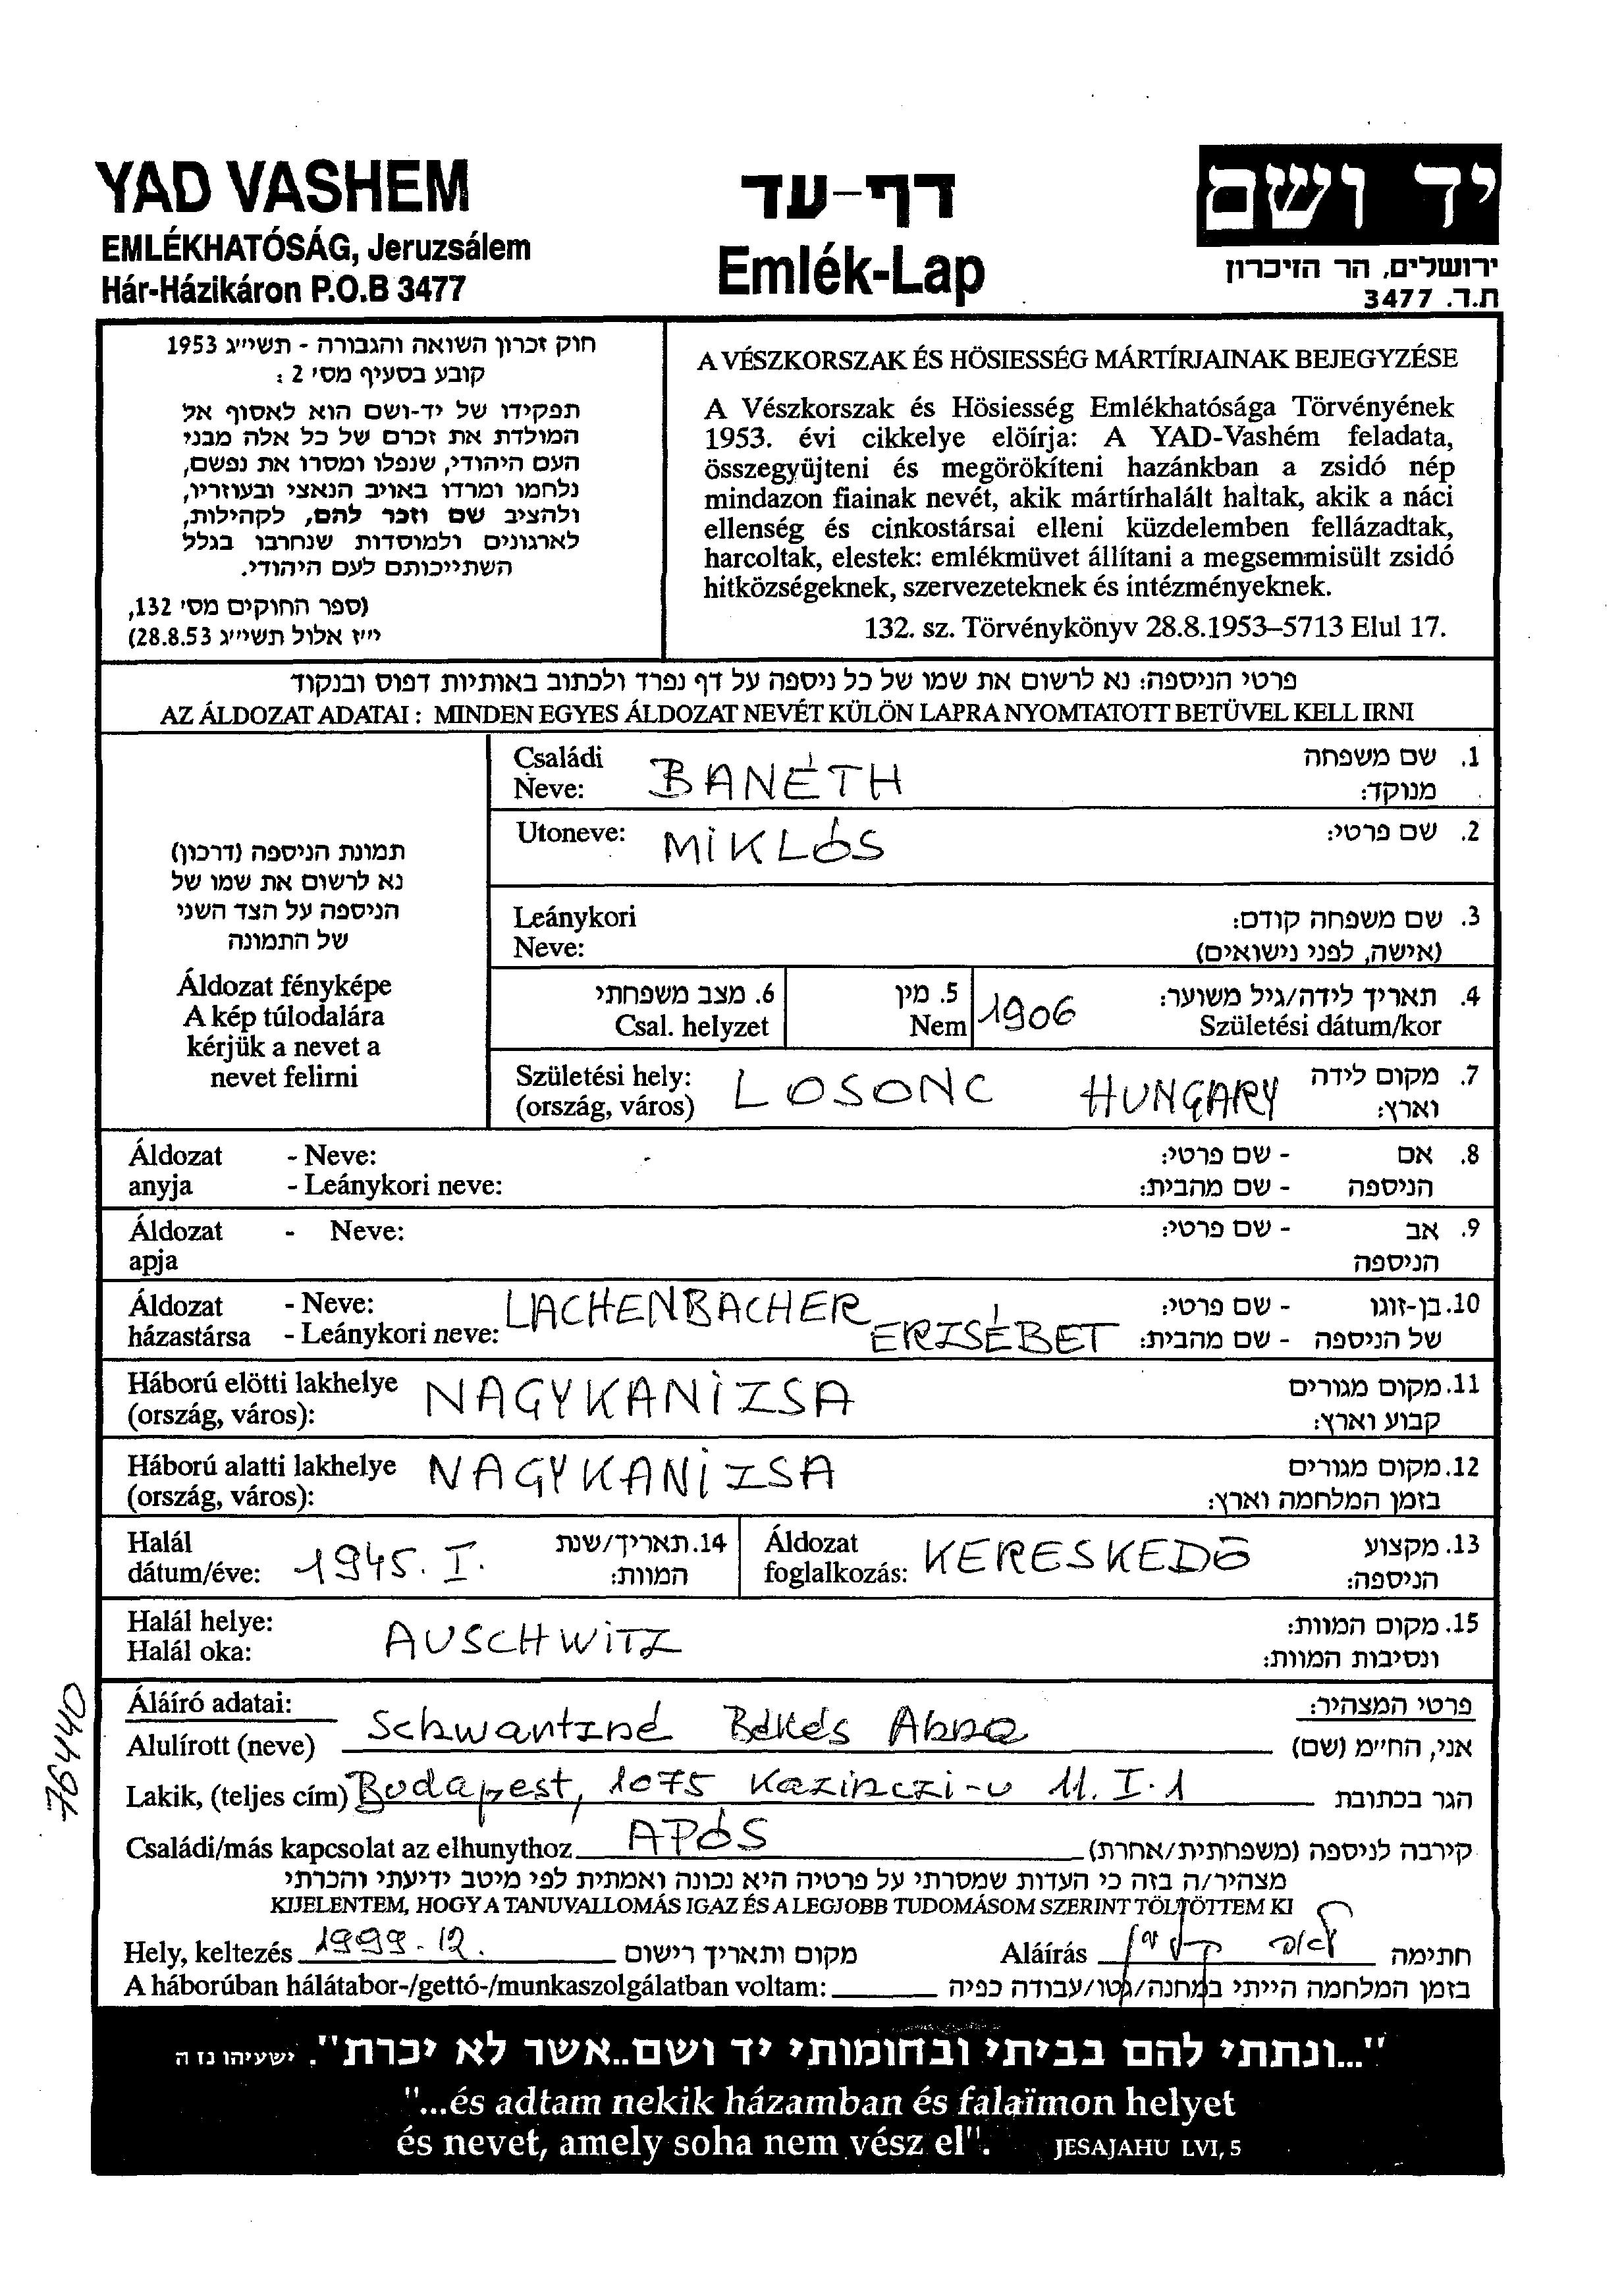 YAD VASHEM
EMLÉKHATÓSÁG, Jeruzsálem
Hár-Házikáron P.O.B 3477
דף-עד
Emlék-Lap
יד ושם
ירושלים, הר הזיכרון
ת.ד. 3477
חוק זכרון השואה והגבורה - תשי״ג 1953
קובע בסעיף מס' 2 :
תפקידו של יד-ושם הוא לאסוף אל
המולדת את זכרם של כל אלה מבני
העם היהודי, שנפלו ומסרו את נפשם,
נלחמו ומרדו באויב הנאצי ובעוזריו,
ולהציב שם וזכר להם, לקהילות,
לארגונים ולמוסדות שנחרבו בגלל
השתייכותם לעם היהודי.
(ספר החוקים מס' 132,
י״ז אלול תשי״ג 28.8.53)
A VÉSZKORSZAK ÉS HÖSIESSÉG MÁRTÍRJAINAK BEJEGYZÉSE
A Vészkorszak és Hösiesség Emlékhatósága Törvényének
1953. évi cikkelye elöírja: A YAD-Vashém feladata,
összegyüjteni és megörökíteni hazánkban a zsidó nép
mindazon fiainak nevét, akik mártírhalált haltak, akik a náci
ellenség és cinkostársai elleni küzdelemben fellázadtak,
harcoltak, elestek: emlékmüvet állítani a megsemmisült zsidó
hitközségeknek, szervezeteknek és intézményeknek.
132. sz. Törvénykönyv 28.8.1953–5713 Elul 17.
פרטי הניספה: נא לרשום את שמו של כל ניספה על דף נפרד ולכתוב באותיות דפוס ובנקוד
AZ ÁLDOZAT ADATAI : MINDEN EGYES ÁLDOZAT NEVÉT KÜLÖN LAPRA NYOMTATOTT BETÜVEL KELL IRNI
תמונת הניספה (דרכון)
נא לרשום את שמו של
הניספה על הצד השני
של התמונה
Áldozat fényképe
A kép túlodalára
kérjük a nevet a
nevet felirni
Családi Neve: BANÉTH 1. שם משפחה מנוקד:
Utoneve: MIKLÓS 2. שם פרטי:
Leánykori Neve: 3. שם משפחה קודם: (אישה, לפני נישואים)
6. מצב משפחתי Csal. helyzet 5. מין Nem 1906 4. תאריך לידה/גיל משוער: Születési dátum/kor
Születési hely: (ország, város) LOSONC HUNGARY 7. מקום לידה וארץ:
Áldozat - Neve: - שם פרטי: 8. אם
anyja - Leánykori neve: - שם מהבית: הניספה
Áldozat - Neve: - שם פרטי: 9. אב
apja הניספה
Áldozat - Neve: LACHENBACHER - שם פרטי: 10. בן-זוגו
házastársa - Leánykori neve: ERZSÉBET - שם מהבית: של הניספה
Háború elötti lakhelye (ország, város): NAGYKANIZSA 11. מקום מגורים קבוע וארץ:
Háború alatti lakhelye (ország, város): NAGYKANIZSA 12. מקום מגורים בזמן המלחמה וארץ:
Halál dátum/éve: 1945. I. 14. תאריך/שנת המוות: Áldozat foglalkozás: KERESKEDŐ 13. מקצוע הניספה:
Halál helye: AUSCHWITZ 15. מקום המוות:
Halál oka: ונסיבות המוות:
Áláíró adatai: פרטי המצהיר:
Alulírott (neve) Schwantzné Békés Anna אני, הח״מ (שם)
Lakik, (teljes cím) Budapest, 1075 Kazinczi-u 11. I.1 הגר בכתובת
Családi/más kapcsolat az elhunythoz APÓS קירבה לניספה (משפחתית/אחרת)
מצהיר/ה בזה כי העדות שמסרתי על פרטיה היא נכונה ואמתית לפי מיטב ידיעתי והכרתי
KIJELENTEM, HOGY A TANUVALLOMÁS IGAZ ÉS A LEGJOBB TUDOMÁSOM SZERINT TÖLTÖTTEM KI
Hely, keltezés 1999.12. מקום ותאריך רישום Aláírás חתימה
A háborúban hálátabor-/gettó-/munkaszolgálatban voltam: בזמן המלחמה הייתי במחנה/גטו/עבודה כפיה
76440
"...ונתתי להם בביתי ובחומותי יד ושם..אשר לא יכרת". ישעיהו נז ה
"...és adtam nekik házamban és falaïmon helyet
és nevet, amely soha nem vész el". JESAJAHU LVI, 5